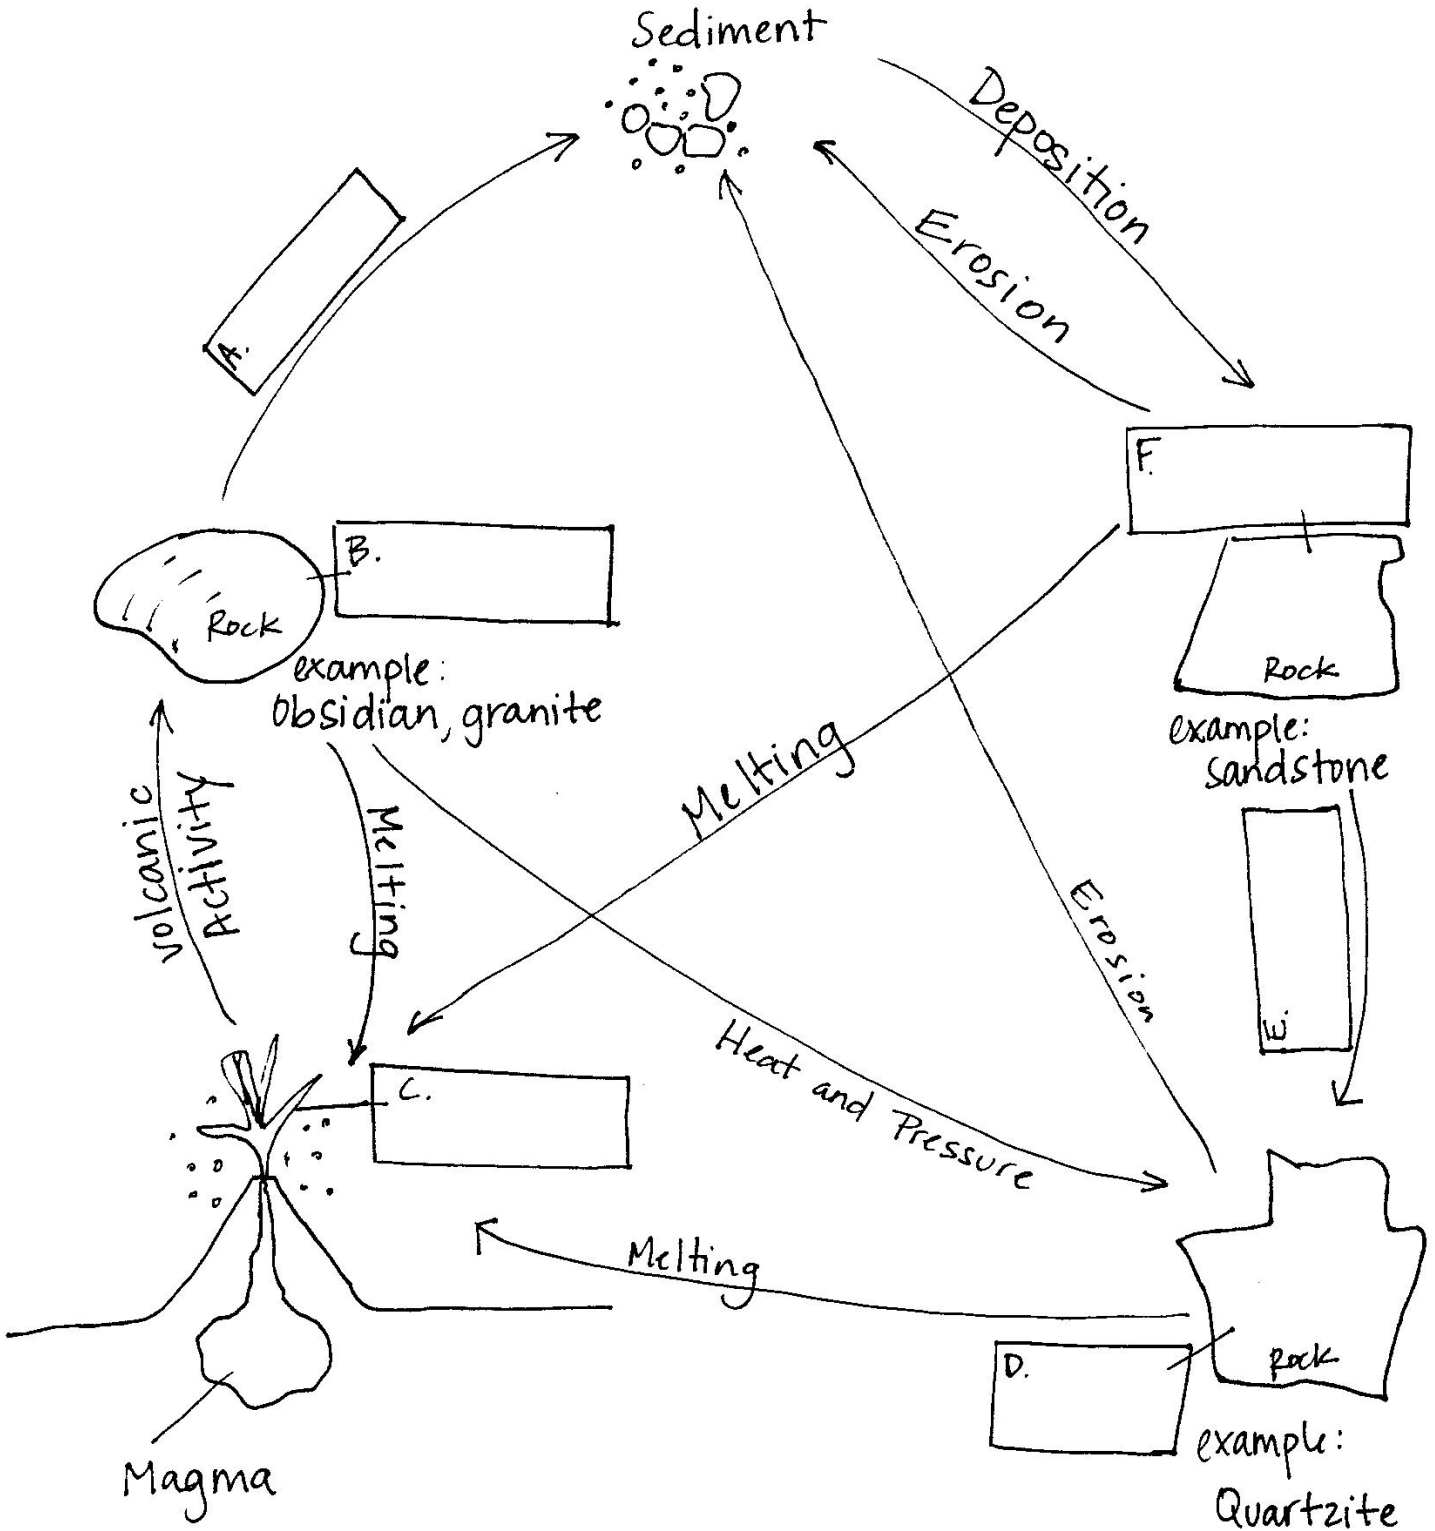 Sediment
Deposition
Erosion
A.
F.
B.
Rock
example:
Obsidian, granite
Rock
example:
sandstone
Melting
volcanic
Activity
Melting
E.
Erosion
Heat and Pressure
C.
Melting
D.
Rock
example:
Quartzite
Magma